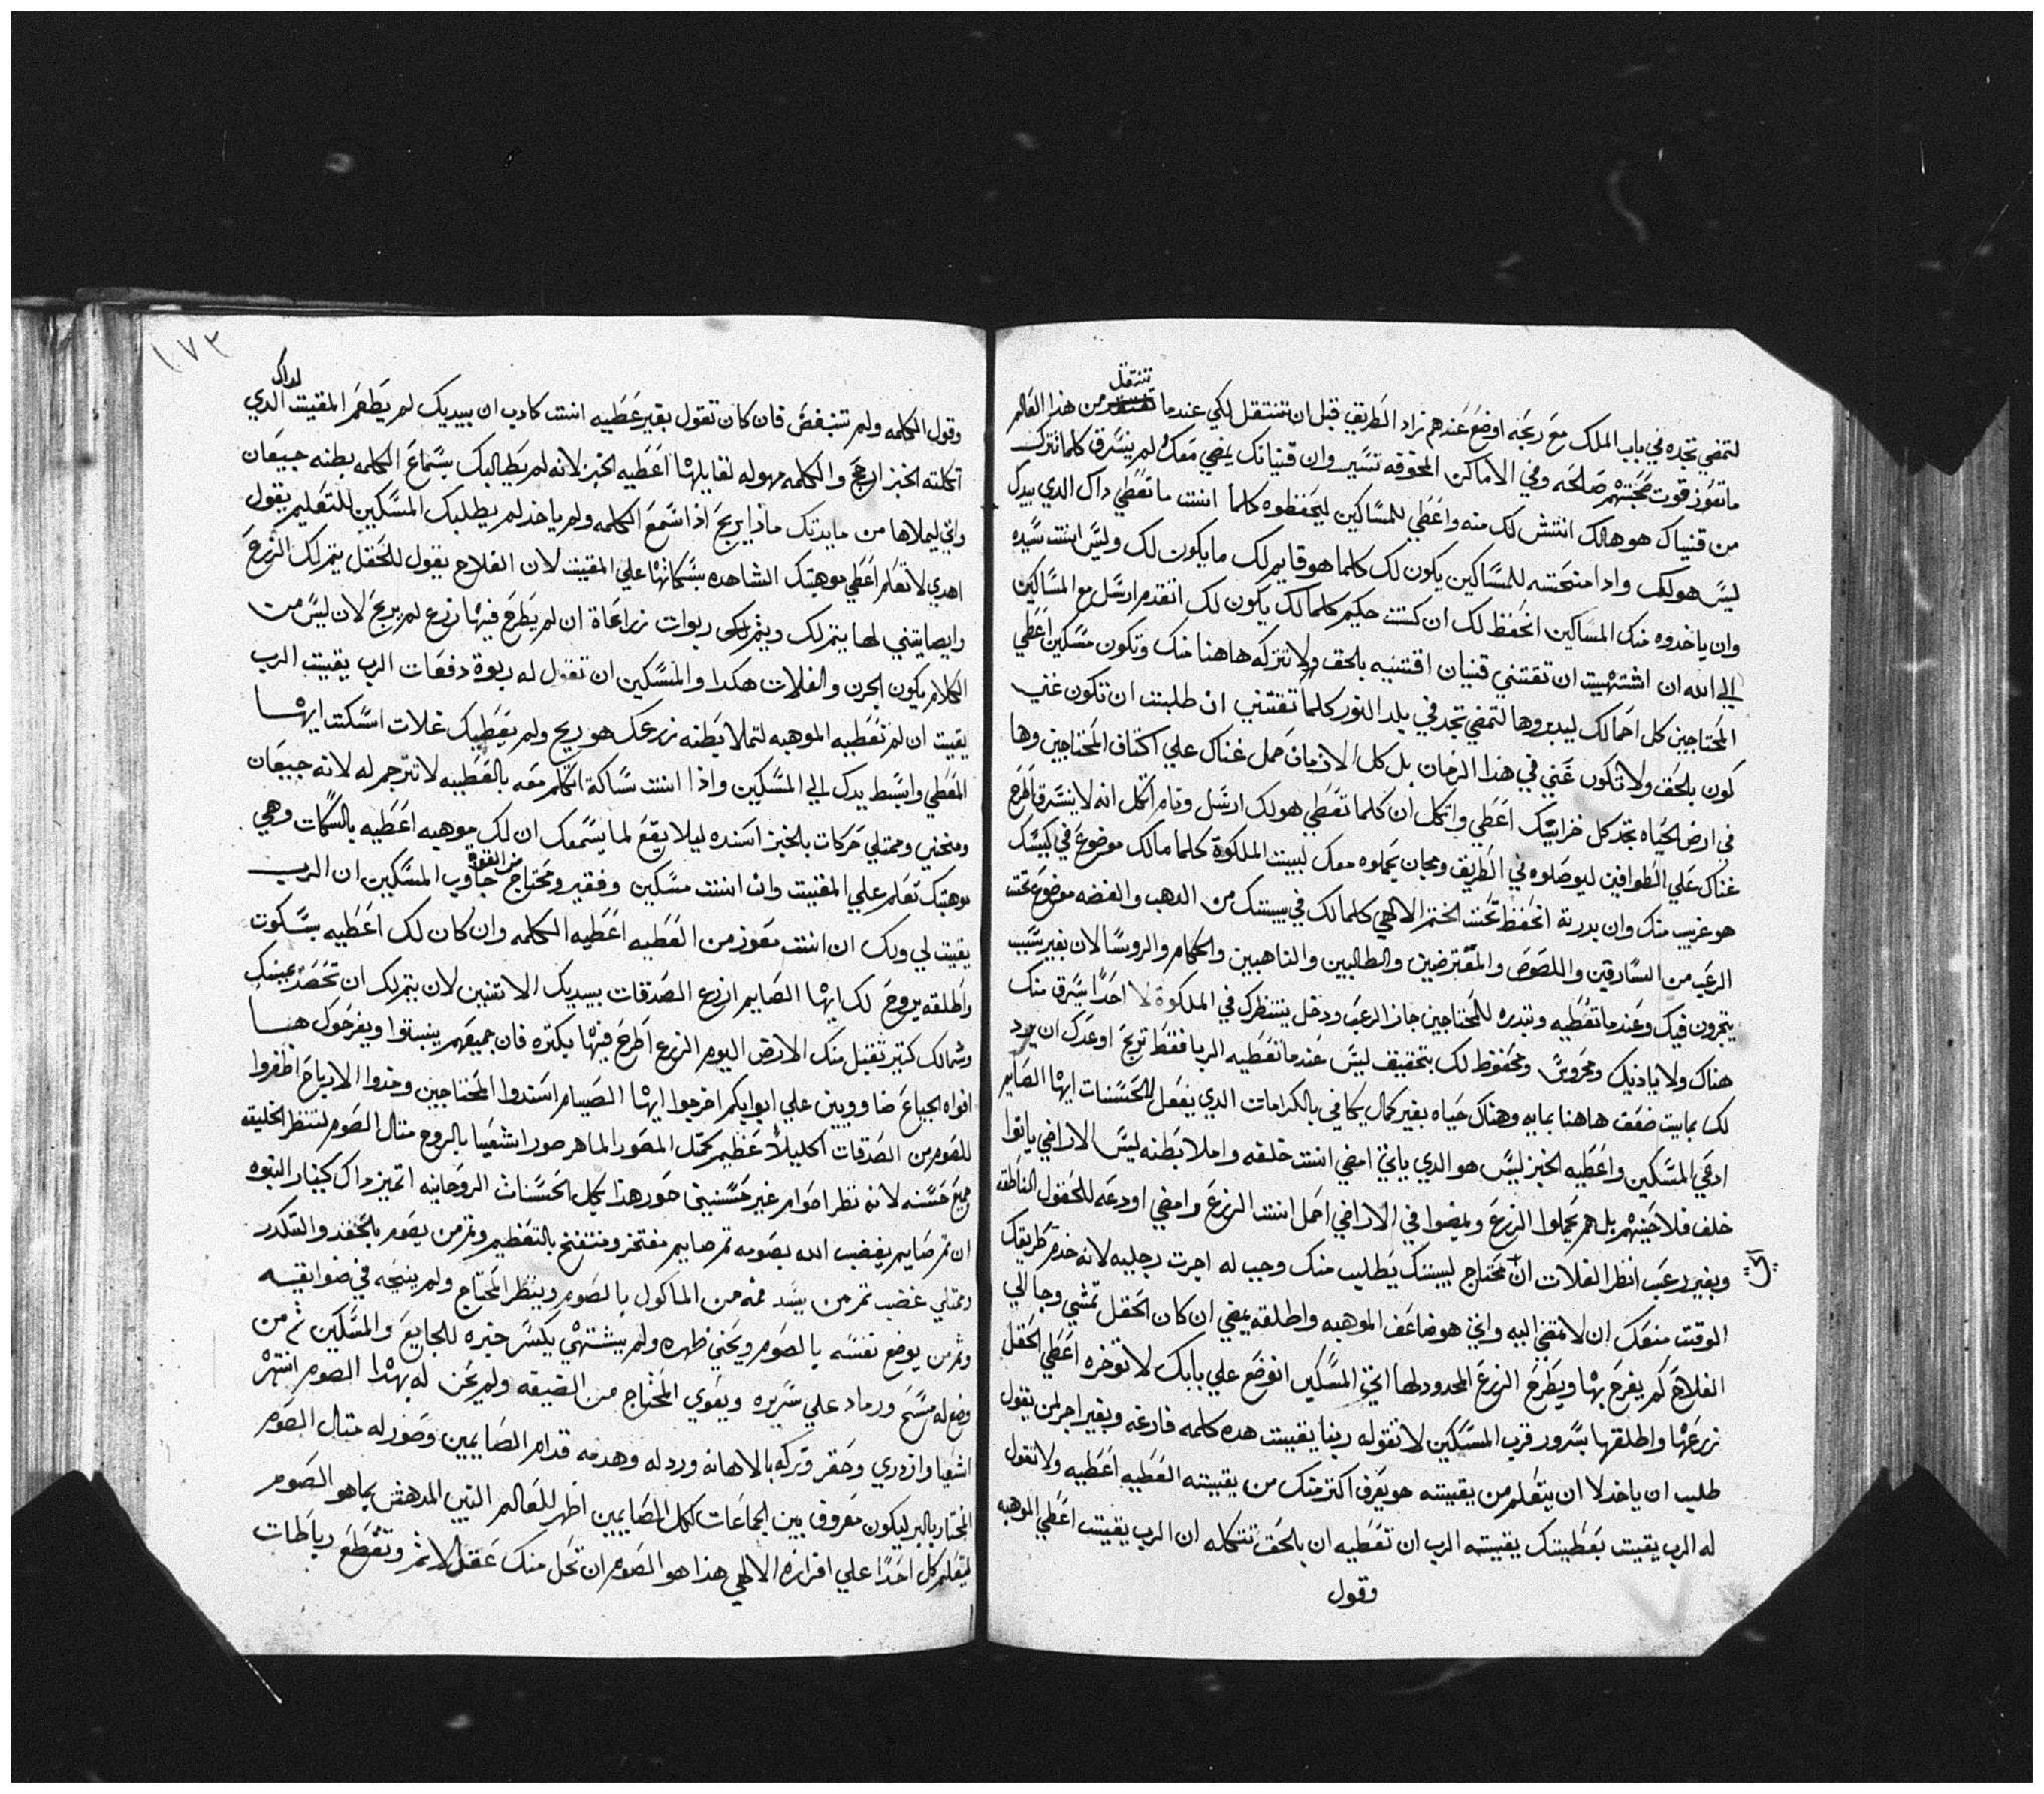 لتمضي تجده في باب الملك مع ريحه اوضع عندهم زاد الطريق قبل ان تنتقل لكي عندما تنتقل من هذا العالم
ما تعوز قوت صحبتهم صالحه وفي الاماكن المخوفه تسير وان قنيانك يمضي معك لم ينسرق كلما تترك
من قنياك هو هالك انتش لك منه واعطي للمساكين ليحفظوه كلما انت ما تعطي داك الدي بيدك
ليس هو لك وادا منحته للمساكين يكون لك كلما هو قايم لك ما يكون لك وليس انت سيده
وان ياخدوه منك المساكين انحفظ لك ان كنت حكيم كلما لك يكون لك اتقدم ارسل مع المساكين
الي الله ان اشتهيت ان تقتني قنيان اقتنيه بالحق ولا تتركه هاهنا منك وتكون مسكين اعطي
المحتاجين كل احمالك ليبدروها لتمضي تجد في بلد النور كلما تقتني ان طلبت ان تكون غني
كون بالحق ولا تكون غني في هذا الزمان بل كل الازمان حمل غناك علي اكتاف المحتاجين وها
في ارض الحياه تجد كل خزاينك اعطي واتكل ان كلما تعطي هو لك ارسل ونام اتكل انه لا ينسرق اطرح
غناك علي الطوافين ليوصلوه في الطريق ومجان يحملوه معك لبيت الملكوة كلما مالك موضوع في كيسك
هو غريب منك وان بدرته انحفظ تحت الختم الالهي كلما لك في بيتك من الدهب والفضه موضوع تحت
الرعب من السارقين واللصوص والمقترضين والطالبين والناهبين والحكام والروسا لان بغير سبب
يتجرون فيك وعندما تعطيه وتبدره للمحتاجين جاز الرعب ودخل ينتظرك في الملكوة لا احدا يسرق منك
هناك ولا يادنيك ومحروس ومحفوظ لك بتحقيق ليس عندما تعطيه الربا فقط تربح اوعدك ان يرد
لك بمايت ضعف هاهنا بمايه وهناك حياه بغير كمال يكافي بالكرامات الدي يفعل الحسنات ايها الصايم
ادعي المسكين واعطيه الخبز ليس هو الدي ياتي امضي انت خلفه واملا بطنه ليس الاراضي ياتوا
خلف فلاحينهم بل هم يحملوا الزرع ويمضوا في الاراضي احمل انت الزرع وامضي اودعه للحقول الناطقه
وبغير رعب انظر الغلات ان محتاج لبيتك يطلب منك وجب له اجرت رجليه لانه خدم طريقك
الوقت منعك ان لا تمضي اليه واتي هو ضاعف الموهبه واطلقه يمضي ان كان الحقل تمشي وجا الي
الفلاح كم يفرح بها ويطرح الزرع المحدود لها اتخر المسكين اتوضع علي بابك لا توخره اعطي الحقل
زرعها واطلقها بسرور قرب المسكين لا تقوله ربنا يقيت هده كلمه فارغه وبغير اجر لمن يقول
طلب ان ياخد لا ان يتعلم من يقيته هو يعرف اكتر منك من يقيته العطيه اعطيه ولا تقول
له الرب يقيت بعطيتك يقيته الرب ان تعطيه ان بالحق تتكله ان الرب يقيت اعطي الموهبه
وقول
١٠٧٣
وقول الكلمه ولم تنبغض فان كان تقول بغير عطيه انت كادب ان بيديك لم يطعم المقيت لداك الدي
اتكلته الخبز ارجح والكلمه مهوله نقابلها اعطيه الخبز لانه لم يطالبك بسماع الكلمه بطنه جيعان
واتي ليملاها من مايدتك مادا يربح ادا سمع الكلمه ولم ياخد لم يطلبك المسكين للتعليم يقول
اهدي لا تعلم اعطي موهبتك الشاهده بسكاتها علي المقيت لان الفلاح يقول للحقل يتمر لك الزرع
وايصا يتني لها يتمر لك ويتمر لكي ربوات زراعاة ان لم يطرح فيها زرع لم يربح لان ليس من
الكلام يكون الجرن والغلات هكدا والمسكين ان تقول له ربوة دفعات الرب يقيت الرب
يقيت ان لم تعطيه الموهبه لتملا بطنه زرعك هو ريح ولم يعطيك غلات اسكت ايها
المعطي وابسط يدك الي المسكين وادا انت ساكة اتكلم معه بالعطيه لا تترجم له لانه جيعان
ومنحني وممتلي حركات بالخبز اسنده ليلا يقع لما يسمعك ان لك موهبه اعطيه بالسكات وهي
موهبتك تعلم علي المقيت وان انت مسكين وفقير ومحتاج من القوة جاوب المسكين ان الرب
يقيت لي ولك ان انت معوز من العطيه اعطيه الكلمه وان كان لك اعطيه بسكوت
واطلقه يروح لك ايها الصايم ازرع الصدقات بيديك الاتنين لان يتمر لك ان تحصد بيمينك
وشمالك كتير تقبل منك الارض اليوم الزرع اطرح فيها بكتره فان جميعهم ينبتوا ويفرحوك هنا
افواه الجياع ضاوويين علي ابوابكم اخرجوا ايها الصيام اسندوا المحتاجين وخدوا الارباح اظفروا
للصوم من الصدقات اكليلا عظيم كمتل المصور الماهر صور اشعيا بالروح متال الصوم لتنظر الخليقه
جميع حسنه لانه نظر اصوام غير حسنين صور هدا بكل الحسنات الروحانيه اتميز داك كينار النبوه
ان تم صايم يغضب الله بصومه تم صايم مفتخر ومنتفخ بالتعظيم وتم من يصوم بالحقد والتكدر
وممتلي غضب تم من يسد فمه من الماكول بالصوم وينظر المحتاج ولم ينيحه في ضوايقه
وتم من يوضع نفسه بالصوم ويحني ظهره ولم يشتهي يكسر خبزه للجايع والمسكين تم من
وضع له مسح ورماد علي سريره ويغوي المحتاج من الضيقه ولم يحن له بهدا الصوم انتهر
اشعيا وازدري وحقر وتركه بالاهانه وردله وهدمه قدام الصايمين وصور له متال الصوم
المختار بالبر ليكون معروف بين الجماعات لكل الصايمين اظهر للعالم النبي المدهش بما هو الصوم
ليتعلم كل احدا علي افرازه الالهي هدا هو الصوم ان تحل منك عقل الاتم وتقطع رباطات